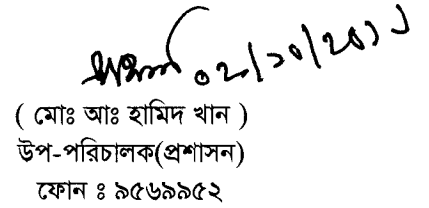 ০২/১০/২০১১
( মোঃ আঃ হামিদ খান )
উপ-পরিচালক(প্রশাসন)
ফোন ঃ ৯৫৬৯৯৫২